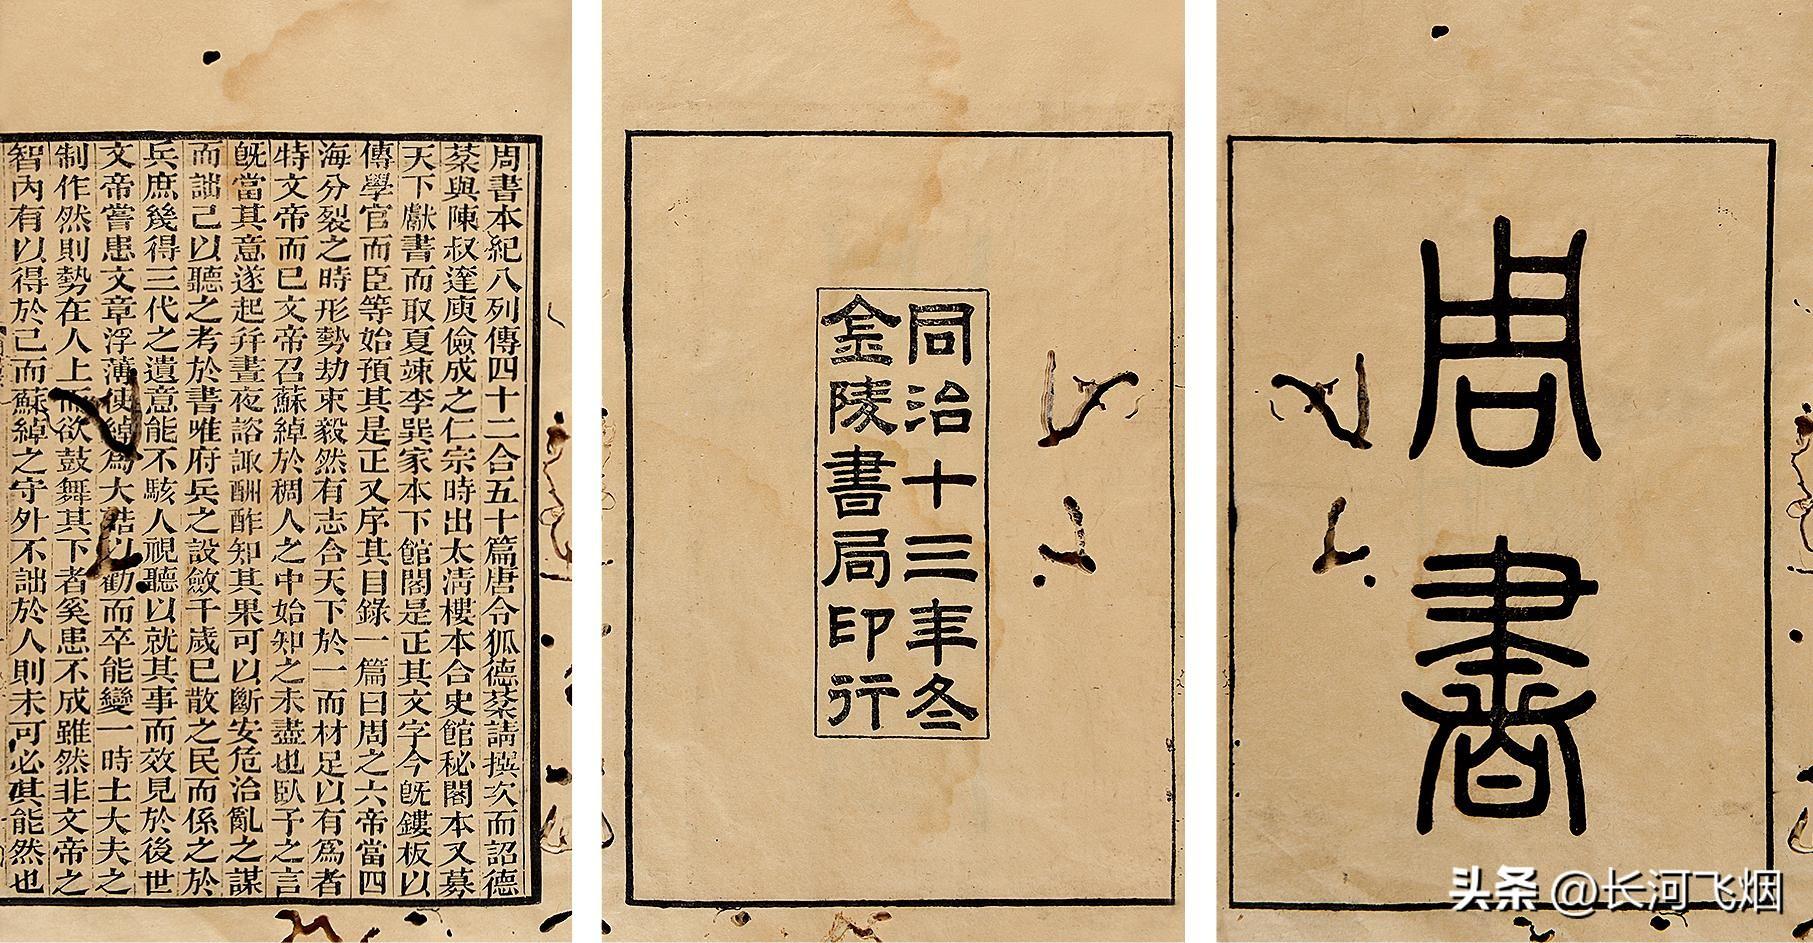 周書
同治十三年冬
金陵書局印行
周書本紀八列傳四十二合五十篇唐令狐德棻請撰次而詔德
棻與陳叔達庾儉成之仁宗時出太清樓本合史館秘閣本又募
天下獻書而取夏竦李巽家本下館閣是正其文字今旣鏤板以
傳學官而臣等始預其是正又序其目錄一篇曰周之六帝當四
海分裂之時形勢劫束毅然有志合天下於一而材足以有爲者
特文帝而已文帝召蘇綽於稠人之中始知之未盡也臥予之言
旣當其意遂起幷晝夜諮諏酬酢知其果可以斷安危治亂之謀
而詘己以聽之考於書唯府兵之設斂千歲已散之民而係之於
兵庶幾得三代之遺意能不駭人視聽以就其事而效見於後世
文帝嘗患文章浮薄使綽爲大誥以勸而卒能變一時士大夫之
制作然則勢在人上而欲鼓舞其下者奚患不成雖然非文帝之
智內有以得於己而蘇綽之守外不詘於人則未可必其能然也
头条 @长河飞烟